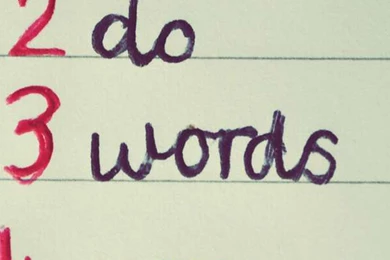 2 do
3 words